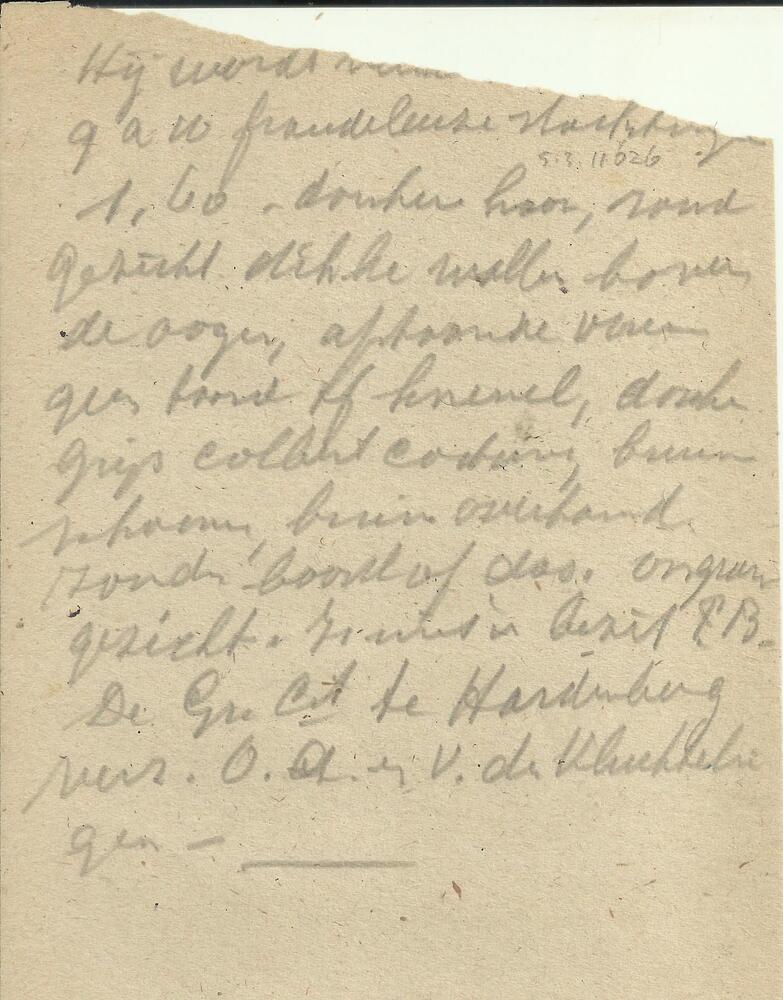 Hij wordt
g a w fraudeleuze slachting
5.3.11626
1,60 - donker haar, rond
gezicht dikke wallen boven
de oogen, afstaande
geen baard of knevel, donker
grijs colbert costuum, bruin
schoenen, bruin overhemd
zonder boord of das.
gezicht. is in bezit P B.
De Gr. Cdt te Hardenberg
verz. O. A. en V. der Vluchtelin
gen —